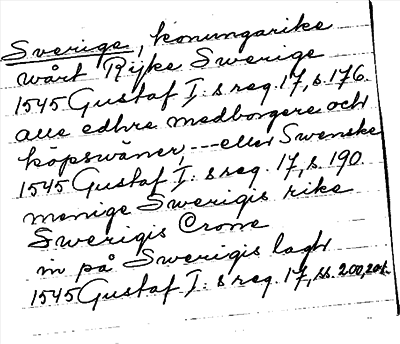 Sverige, konungarike
wårt Rijke Swerige
1545 Gustaf I:s reg. 17, s. 176.
alle edhre medborgere och
köpswäner, --- eller Swenske
1545 Gustaf I:s reg. 17, s. 190.
menige Swerigis rike
Swerigis Crone
in på Swerigis lagh
1545 Gustaf I:s reg. 17, ss. 200, 201.